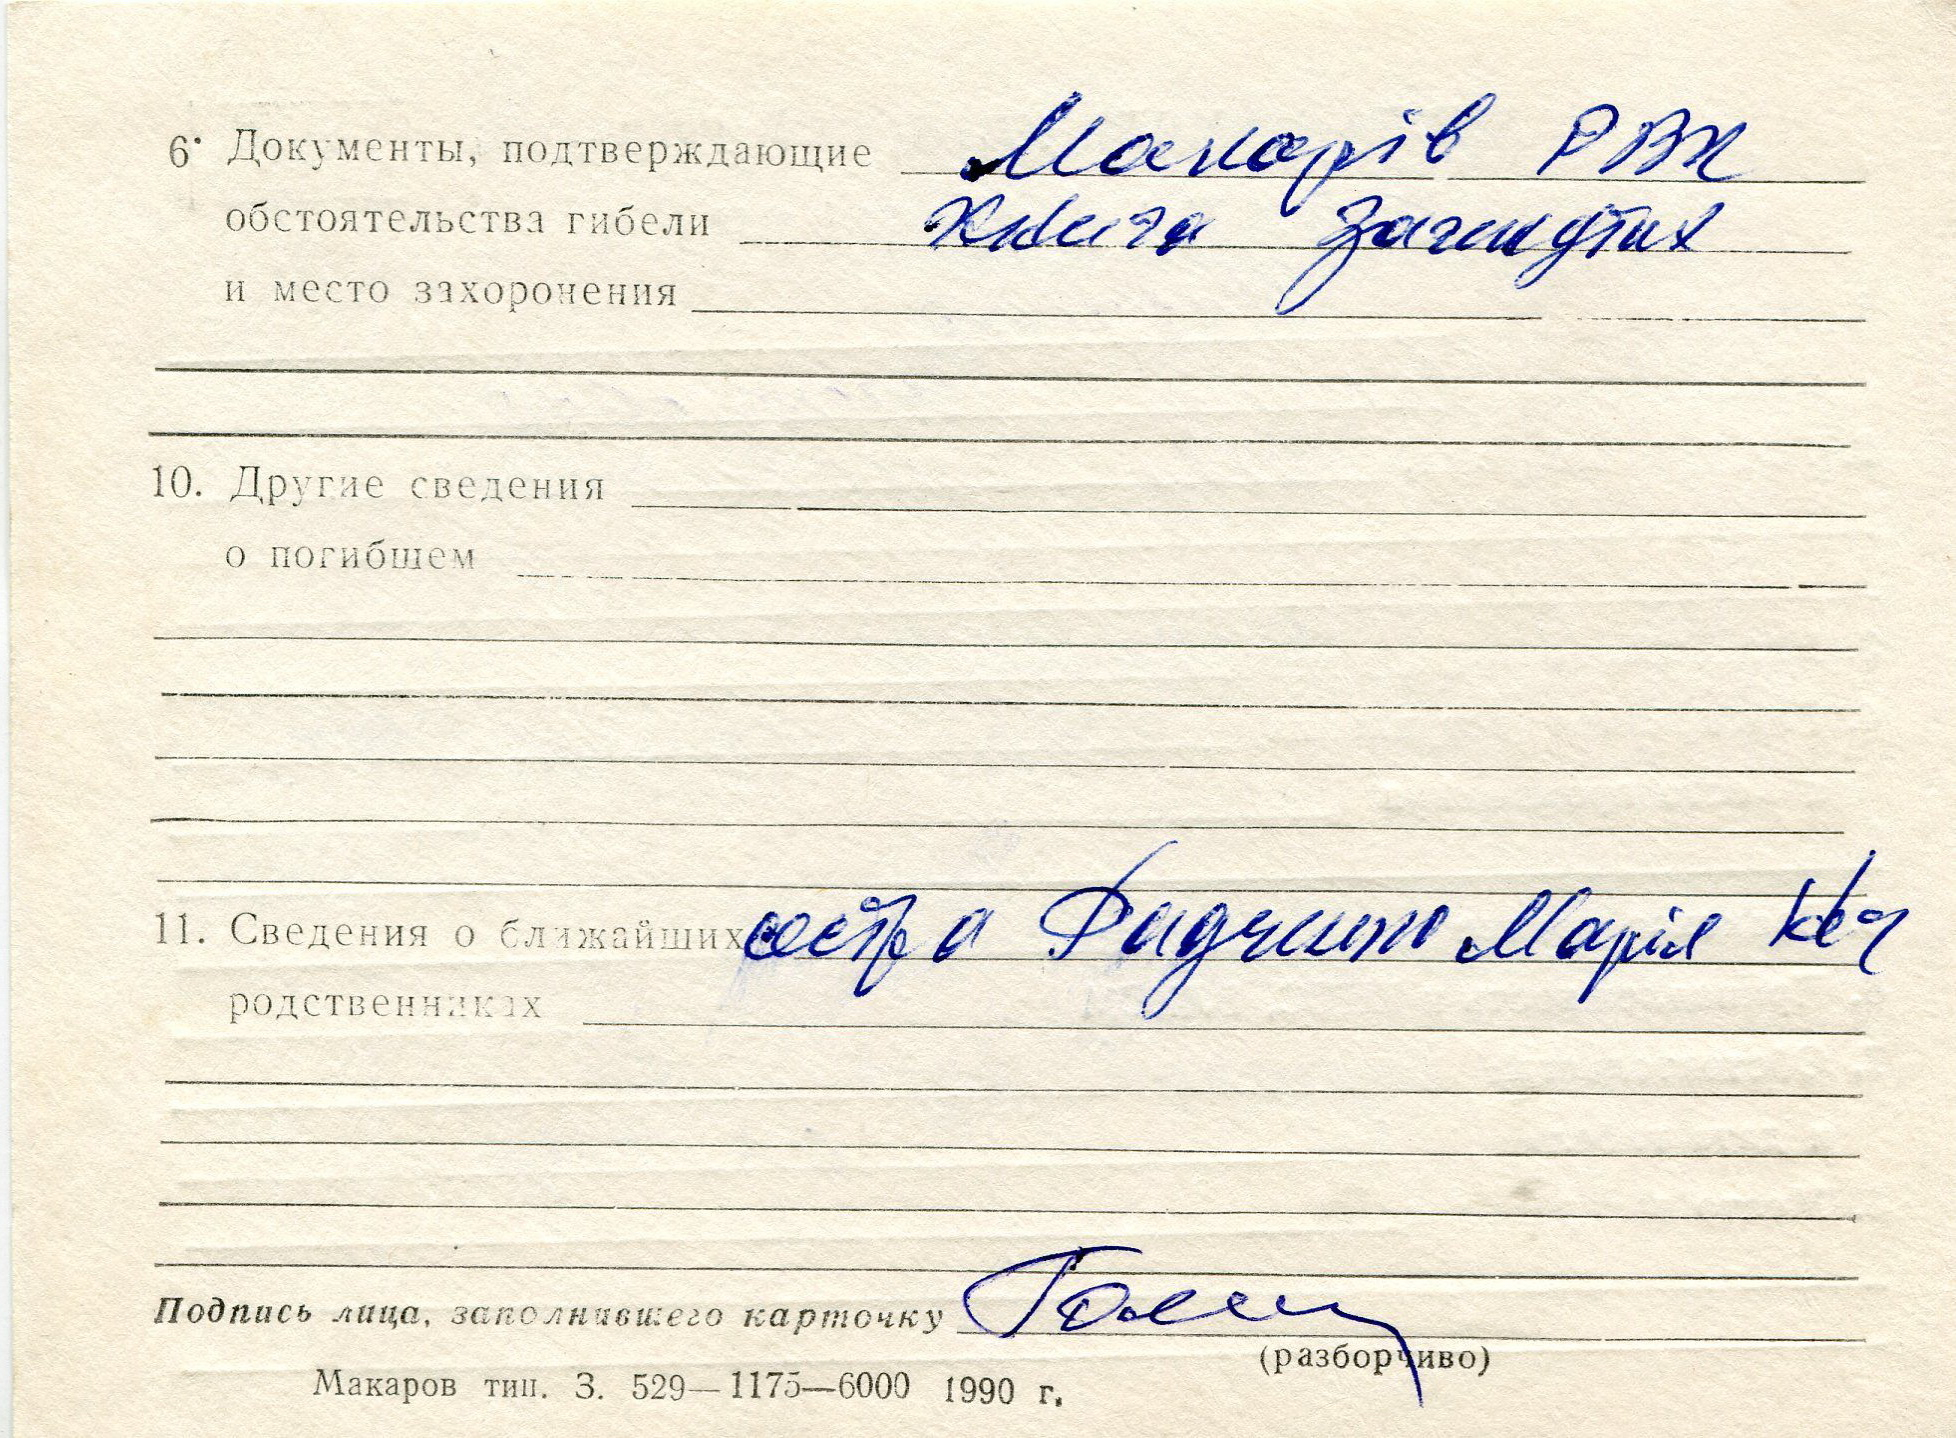 6. Документы, подтверждающие Макарів РВК
обстоятельства гибели Книга загинутих
и место захоронения
10. Другие сведения
о погибшем
11. Сведения о ближайших сестра Марія
родственниках
Подпись лица, заполнившего карточку
(разборчиво)
Макаров тип. З. 529—1175—6000 1990 г.